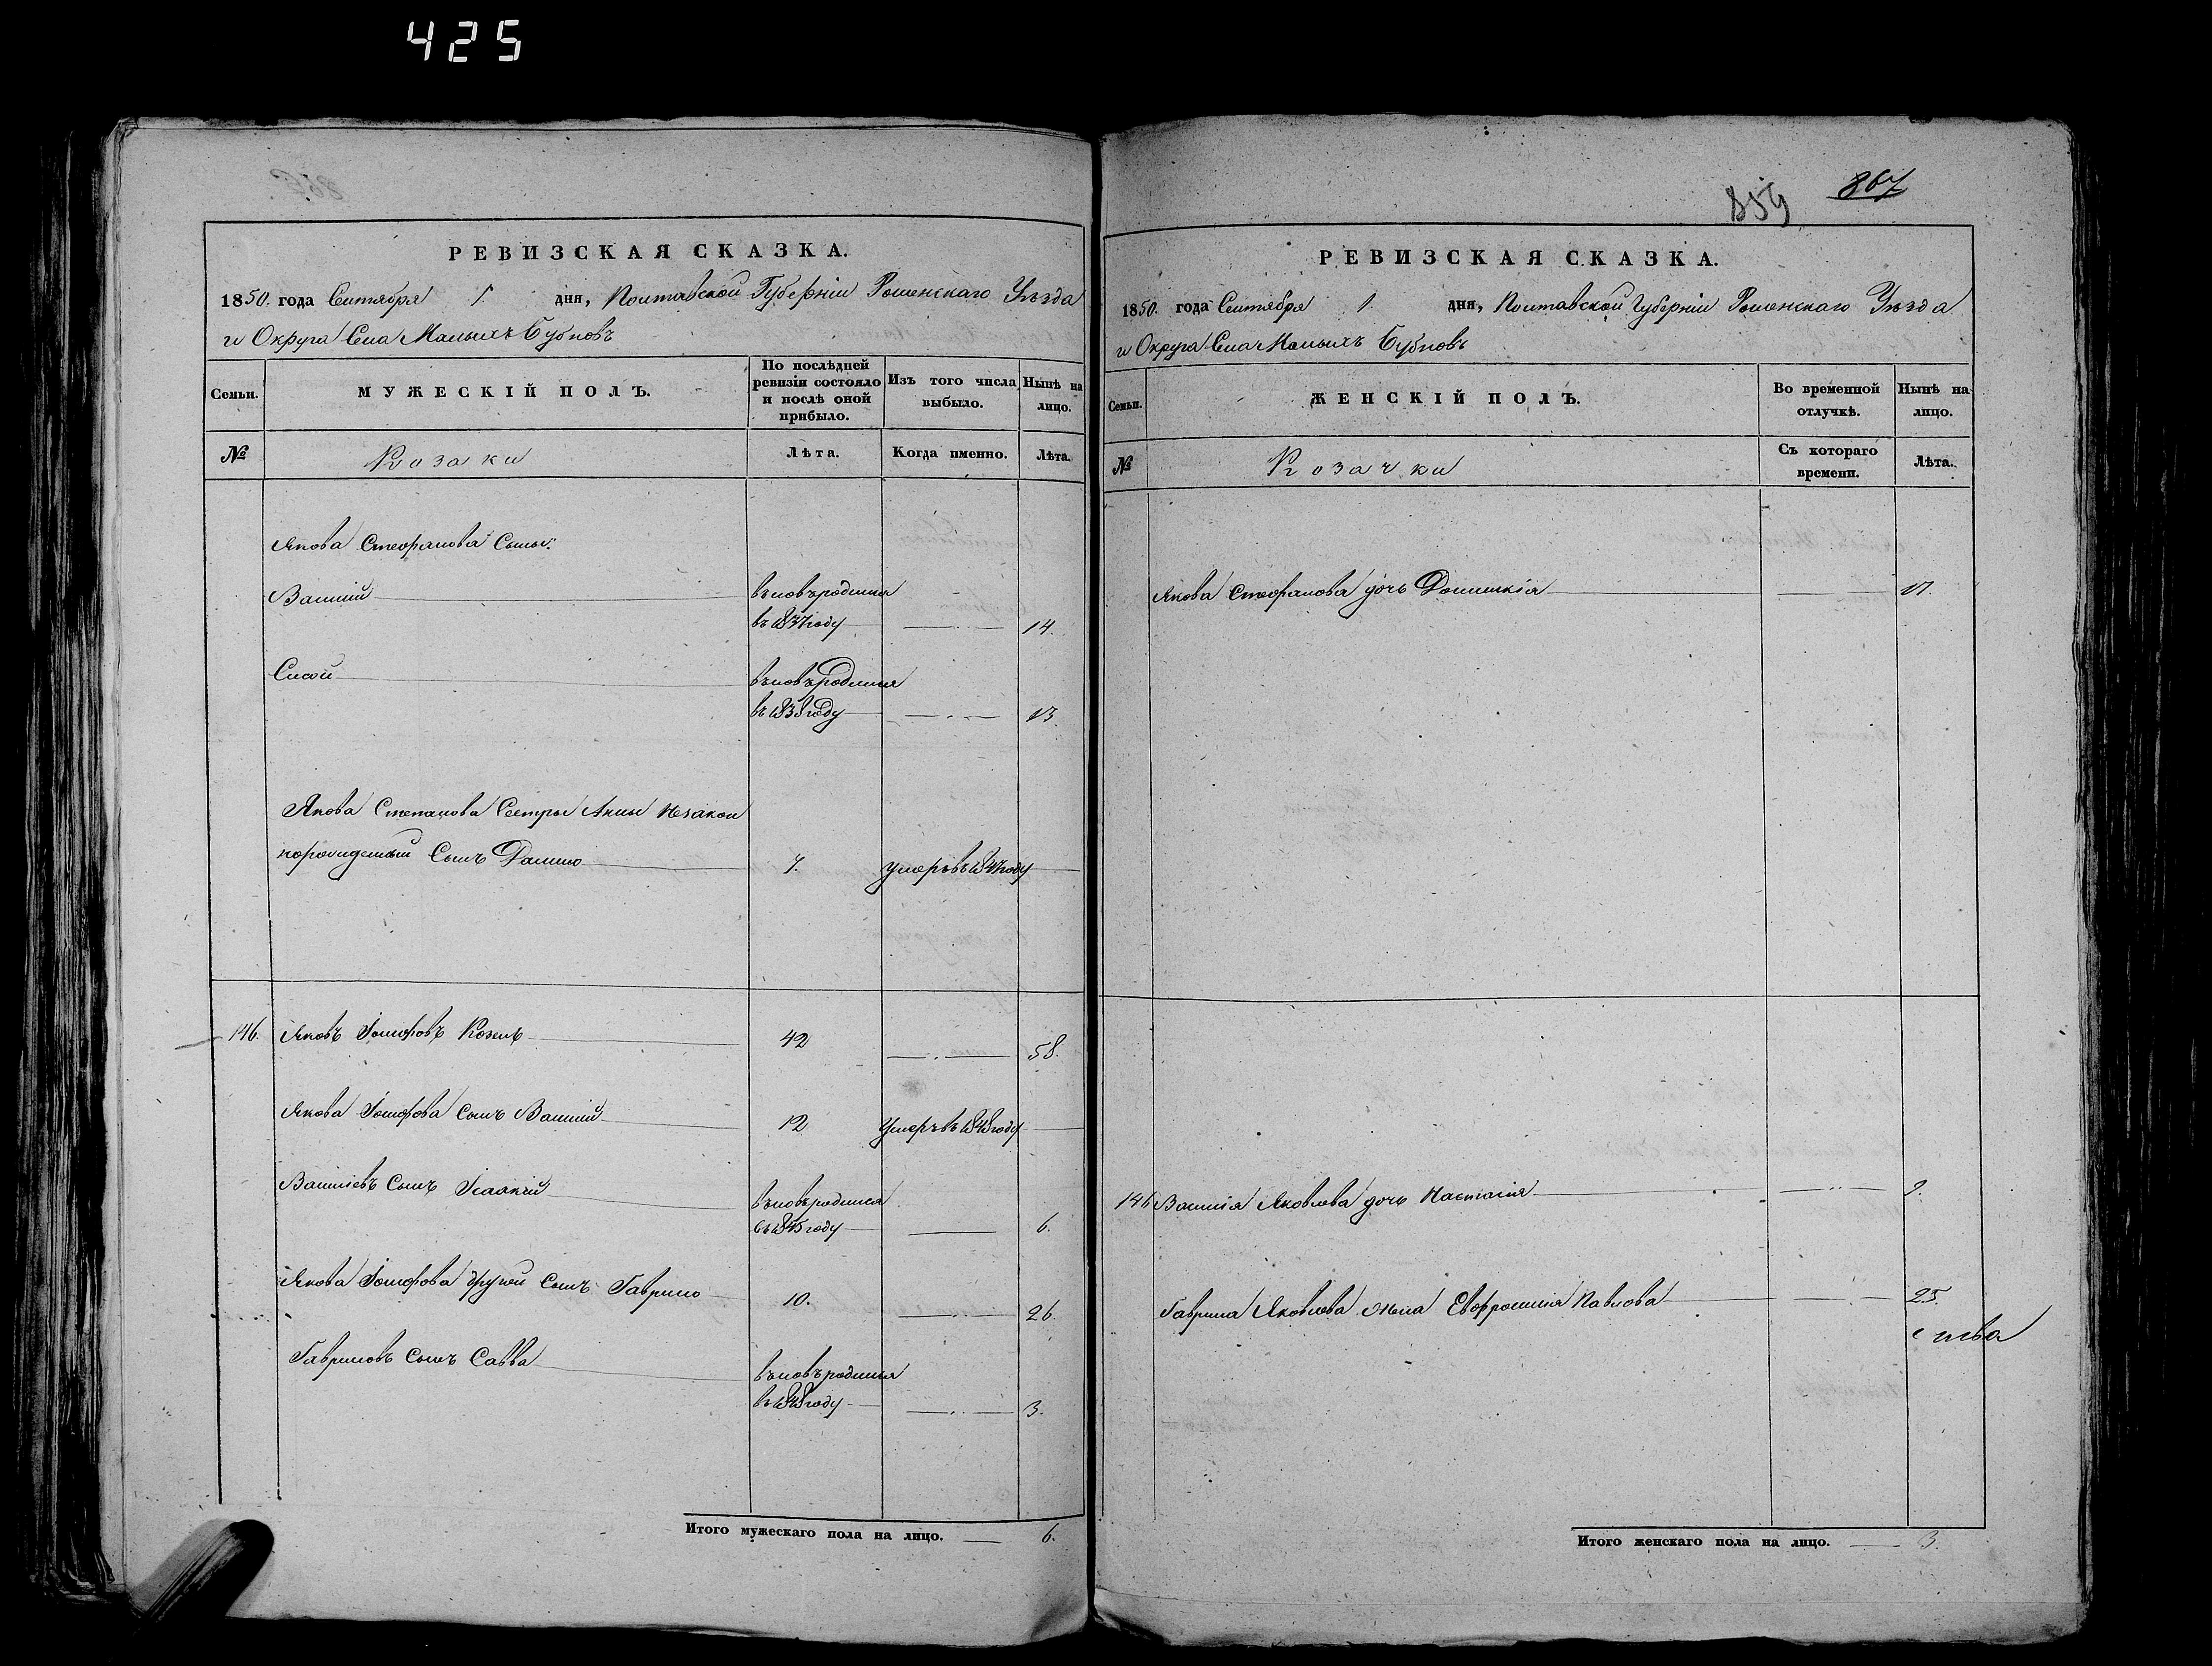 425
РЕВИЗСКАЯ СКАЗКА.
1850. года Сентября 1. дня, Полтавской Губернiи Роменскаго Уѣзда
и Округа Села Малыхъ Бубновъ
Семьи.
МУЖЕСКІЙ ПОЛЪ.
По послѣдней ревизіи состояло и послѣ оной прибыло.
Изъ того числа выбыло.
Нынѣ на лицо.
№
Козаки
Лѣта.
Когда именно.
Лѣта.
Якова Стефанова Сыны:
Василій вновь родился
въ 1837 году 14.
Сисой вновь родился
въ 1838 году 13.
Якова Степанова Сестры Анны незакон
норожденный Сынъ Данило 7. умеръ въ году
146. Яковъ Іосифовъ Козелъ 42 58.
Якова Іосифова Сынъ Василій 12 Умеръ въ 1848 году
Василіевъ Сынъ Ісаакій вновь родился
въ 1845 году 6.
Якова Іосифова другой Сынъ Гаврило 10. 26.
Гавриловъ Сынъ Савва вновь родился
въ 1848 году 3.
Итого мужескаго пола на лицо. 6.
859 867
РЕВИЗСКАЯ СКАЗКА.
1850. года Сентября 1. дня, Полтавской Губернiи Роменскаго Уѣзда
и Округа Села Малыхъ Бубновъ
Семьи.
ЖЕНСКІЙ ПОЛЪ.
Во временной отлучкѣ.
Нынѣ на лицо.
№
Козачки
Съ котораго времени.
Лѣта.
Якова Стефанова дочь 17.
146 Василія Яковлева дочь Настасія 9.
Гаврила Яковлева жена Евфросинія Павлова 25.
Итого женскаго пола на лицо. 3.